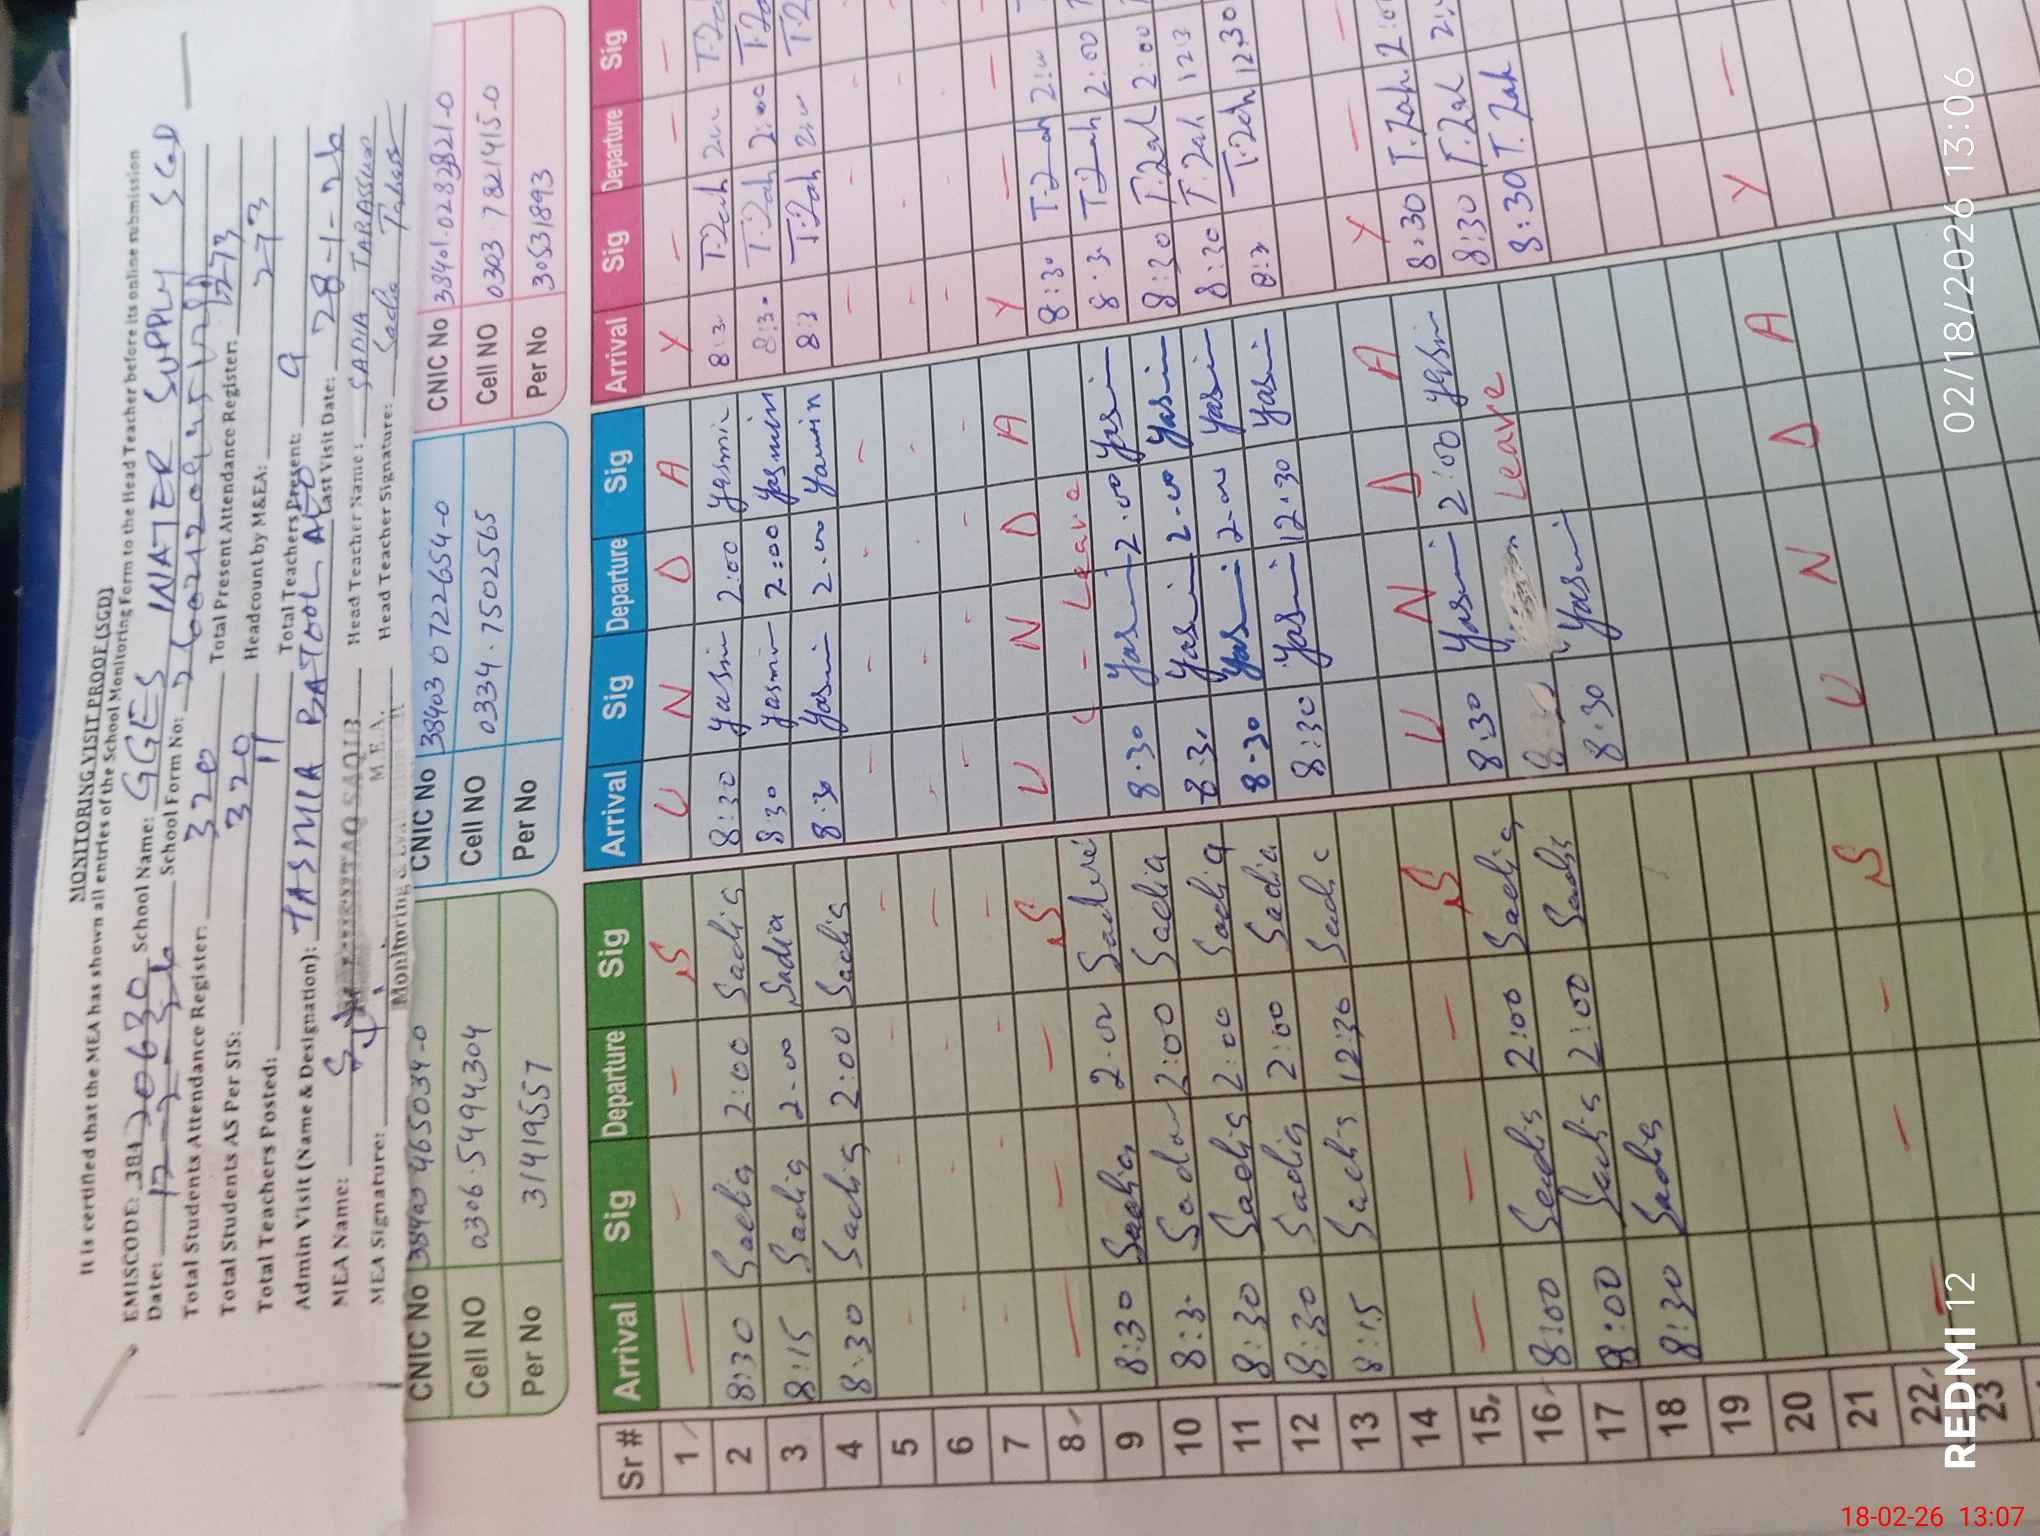 MONITORING VISIT PROOF (SGD)
It is certified that the MEA has shown all entries of the School Monitoring Form to the Head Teacher before its online submission
EMISCODE: 384 20630 School Name: GGES WATER SUPPLY SGD
Date: 17-2-26 School Form No:
Total Students Attendance Register: 320 Total Present Attendance Register: 273
Total Students AS Per SIS: 320 Headcount by M&EA: 273
Total Teachers Posted: 11 Total Teachers Present: 9
Admin Visit (Name & Designation): TASMIA BATOOL AEO Last Visit Date: 28-1-26
MEA Name: Head Teacher Name: SADIA TABASSUM
MEA Signature: M.E.A. Head Teacher Signature: Sadia Tabass
CNIC No 38403 465034-0 CNIC No 38403 0722654-0 CNIC No 38401-0282821-0
Cell NO 0306-5494304 Cell NO 0334-7502565 Cell NO 0303-7821415-0
Per No 31419557 Per No Per No 30531893
Sr # Arrival Sig Departure Sig Arrival Sig Departure Sig Arrival Sig Departure Sig
1 — - - S U N D A Y — — —
2 8:30 Sadia 2:00 Sadia 8:30 Yasmin 2:00 Yasmin 8:3 T.Zah T.Zah
3 8:15 Sadia 2-00 Sadia 8 30 Yasmin 2:00 Yasmin 8:3. T.Zah 2:00 T.Za
4 8:30 Sadia 2:00 Sadia 8:30 Yasmin 2.00 Yasmin 8:3 T.Zah T.Z
5
6
7
8 — — — S U N D A Y — —
9 8:30 Sadia 2-00 Sadia Leave 8:30 T.Zah
10 8:3. Sadia 2:00 Sadia 8.30 Yasmin 2.00 Yasmin 8.30 T.Zah 2:00
11 8:30 Sadia 2:00 Sadia 8.30 Yasmin 2-00 Yasmin 8:30 T.Zah 2:00
12 8:30 Sadia 2:00 Sadia 8-30 Yasmin 2-00 Yasmin 8:30 T.Zah
13 8:15 Sadia 12:30 Sadia 8:30 Yasmin 12.30 Yasmin 8:3 T.Zah 12:30
14
15 — — — S U N D A Y — —
16 8:00 Sadia 2:00 Sadia 8:30 Yasmin 2:00 Yasmin 8:30 T.Zah
17 8:00 Sadia 2:00 Sadia Leave 8:30 T.Zah
18 8:30 Sadia 8:30 Yasmin 8:30 T.Zah
19
20
21
22 — — — S U N D A Y —
23
REDMI 12
02/18/2026 13:06
18-02-26 13:07